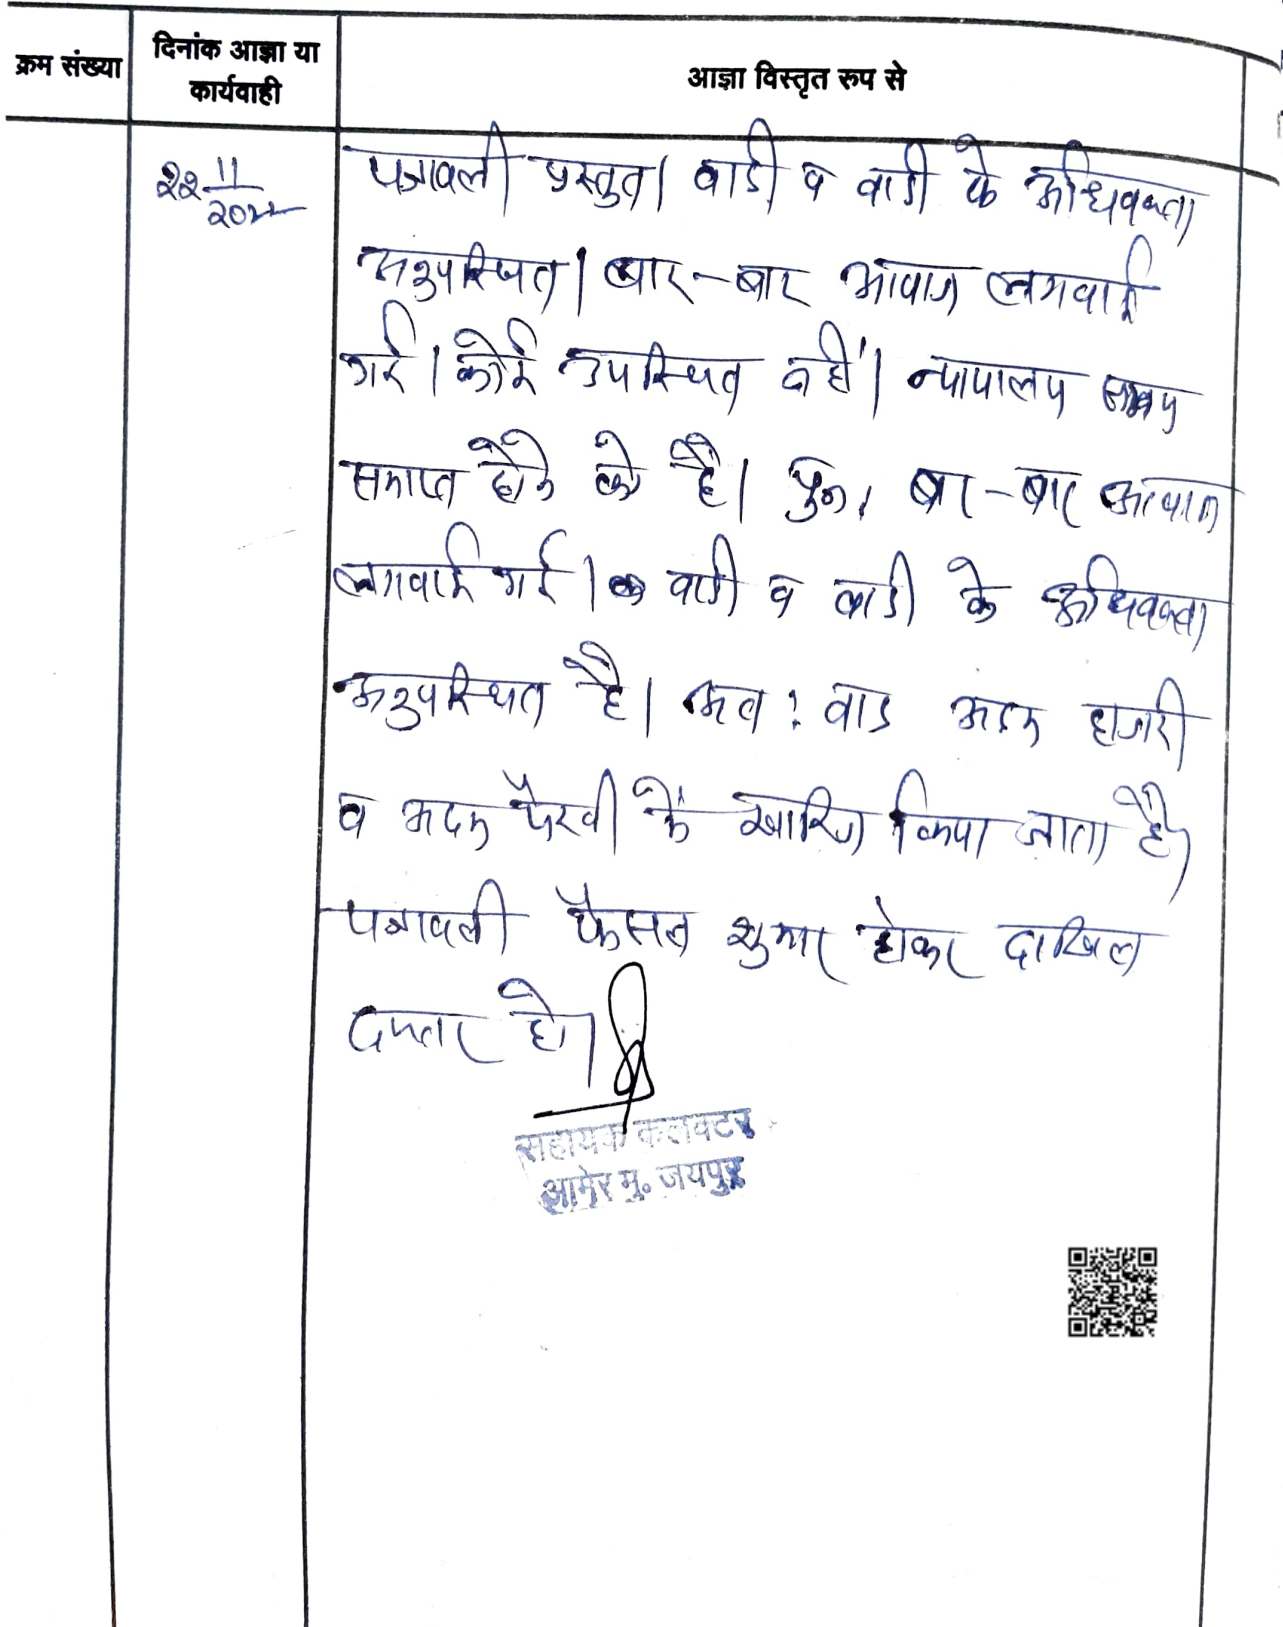 क्रम संख्या
दिनांक आज्ञा या
कार्यवाही
आज्ञा विस्तृत रूप से
22 11
पत्रावली प्रस्तुत। वादी व वादी के अधिवक्ता
अनुपस्थित। बार-बार आवाज लगवाई
गई। कोई उपस्थित नहीं। न्यायालय समय
समाप्त होने को है। पुनः बार-बार आवाज
लगवाई गई। वादी व वादी के अधिवक्ता
अनुपस्थित है। अतः वाद अदम हाजरी
व अदम पैरवी में खारिज किया जाता है।
पत्रावली फैसल शुमार होकर दाखिल
दफ्तर हो।
सहायक कलक्टर
आमेर मु० जयपुर